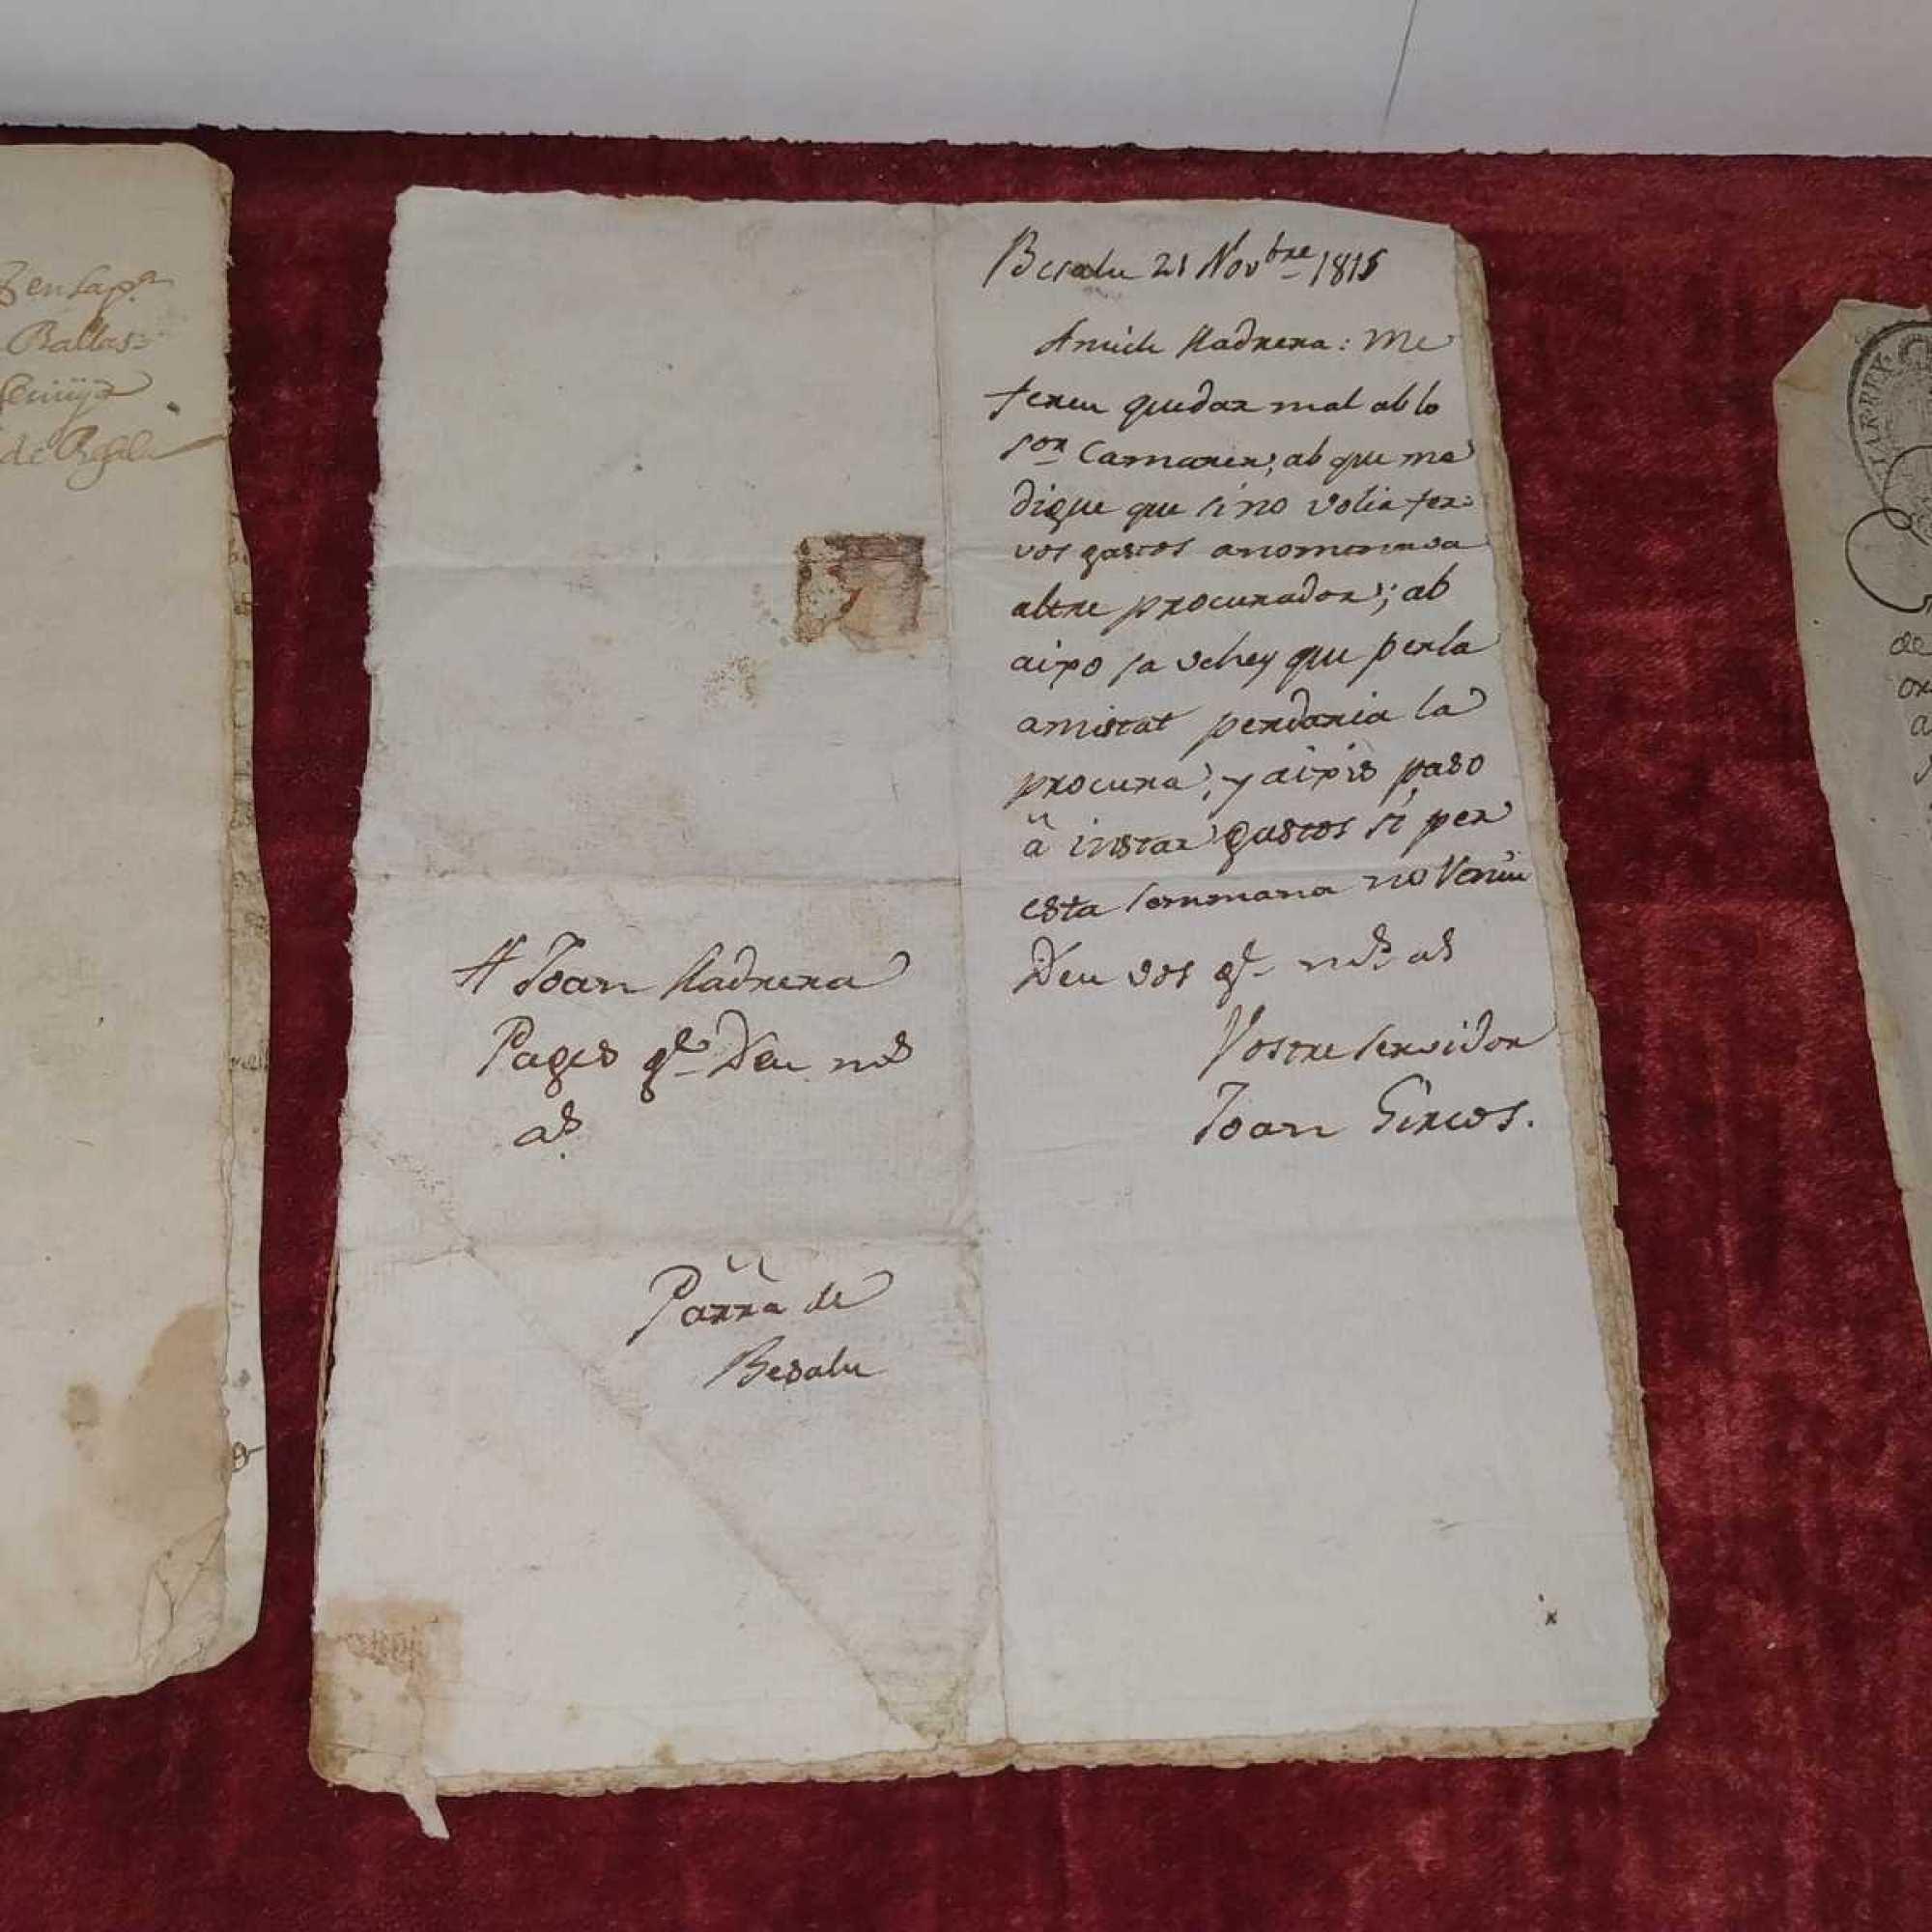 Besalu 21 Nov.bre 1815
Amich Lladrera: Me
fereu quedar mal ab lo
Sor. Camarer, ab que me
digue que si no volia fer=
vos gastos anomenava
altre procurador; ab
aixo ja vehey que per la
amistat perdaria la
procura, y aixis paso
â instar gastos si per
esta semmana no Veniu
Deu vos ge. ms. as
Vostre servidor
Joan
A Joan Lladrera
Pages ge. Deu ms
as.
Parra de
Besalu
Ballas
de
de